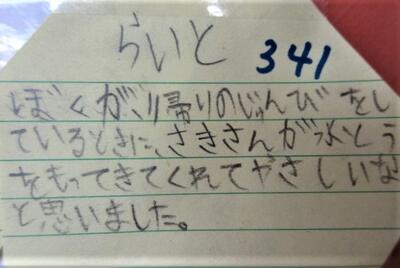 らいと 341
ぼくが、帰りのじゅんびをし
ているときに、さきさんが水とう
をもってきてくれてやさしいな
と思いました。